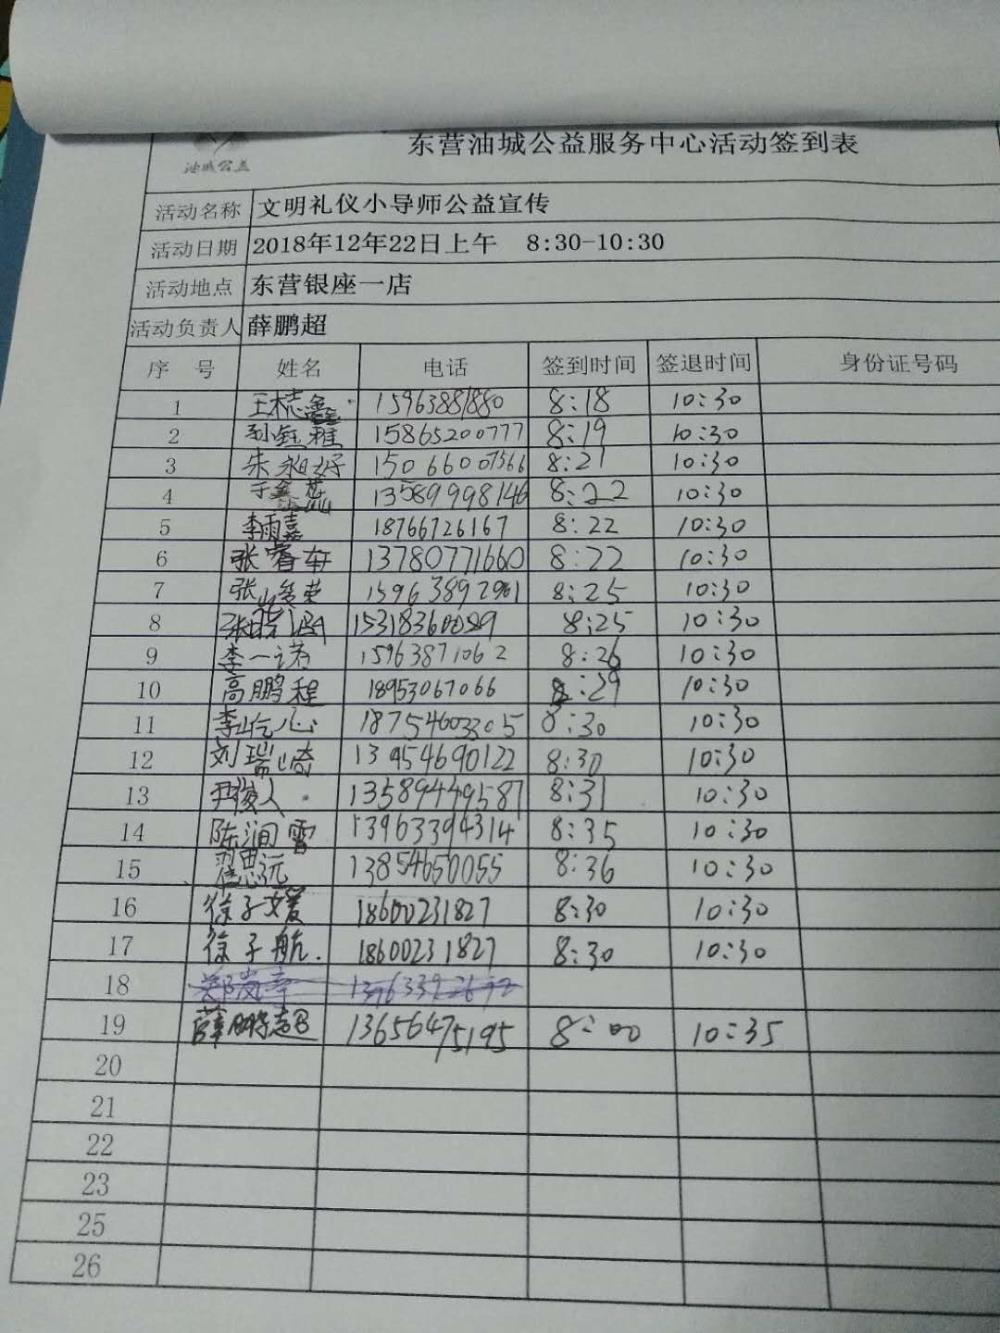 油城公益
东营油城公益服务中心活动签到表
活动名称 文明礼仪小导师公益宣传
活动日期 2018年12年22日上午 8:30-10:30
活动地点 东营银座一店
活动负责人 薛鹏超
序 号 姓名 电话 签到时间 签退时间 身份证号码
1 15963881880 8:18 10:30
2 15865200777 8:19 10:30
3 15066007566 8:21 10:30
4 13589998146 8:22 10:30
5 李雨嘉 18766726167 8:22 10:30
6 张睿轩 13780771660 8:22 10:30
7 15963892901 8:25 10:30
8 8:25 10:30
9 李一诺 15963871062 8:26 10:30
10 高鹏程 18953067066 8:29 10:30
11 18754603305 8:30 10:30
12 刘瑞崎 13954690122 8:30 10:30
13 13589449587 8:31 10:30
14 陈润雪 13963394314 8:35 10:30
15 翟思远 13854650055 8:36 10:30
16 徐子媛 18600231827 8:30 10:30
17 徐子航 18600231827 8:30 10:30
18
19 薛鹏超 13656475195 8:00 10:35
20
21
22
23
25
26